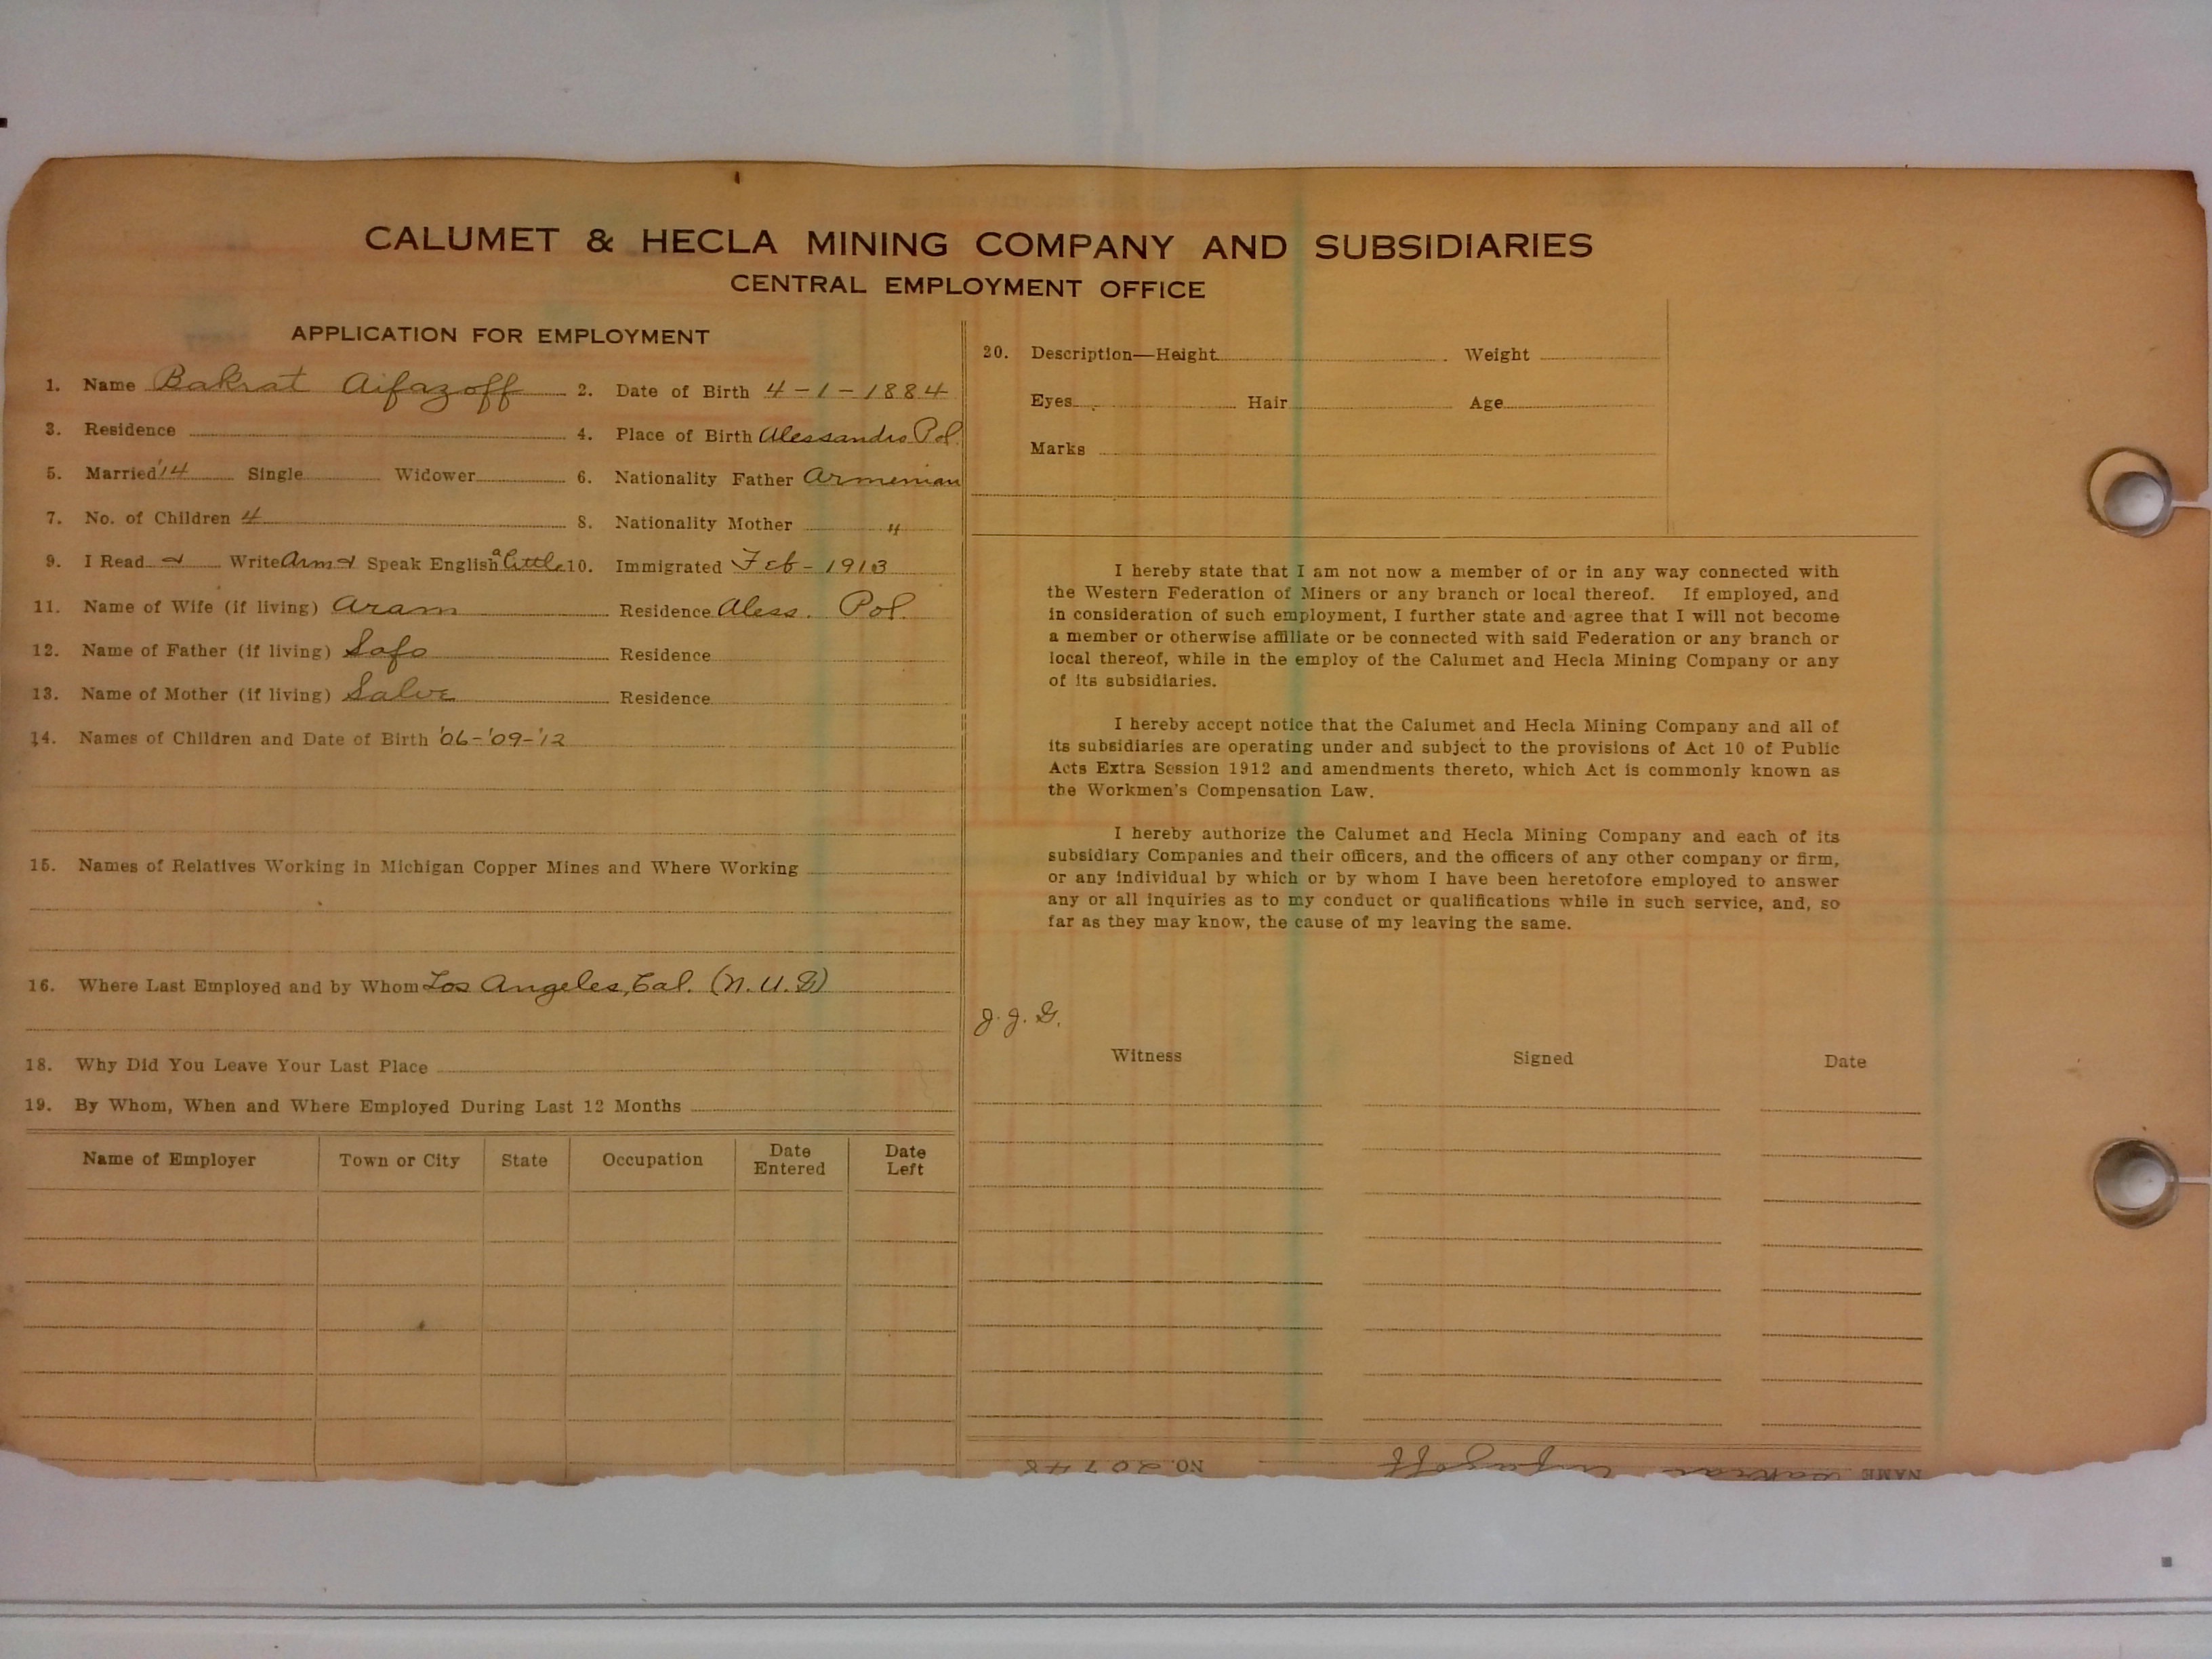 CALUMET & HECLA MINING COMPANY AND SUBSIDIARIES
CENTRAL EMPLOYMENT OFFICE
APPLICATION FOR EMPLOYMENT
1. Name Bakrat Aifazoff 2. Date of Birth 4-1-1884
3. Residence 4. Place of Birth Alessandro Pol.
5. Married '14 Single Widower 6. Nationality Father Armenian
7. No. of Children 4 8. Nationality Mother "
9. I Read Write Arm Speak English a little 10. Immigrated Feb-1913
11. Name of Wife (if living) Aram Residence Aless. Pol.
12. Name of Father (if living) Safo Residence
13. Name of Mother (if living) Salve Residence
14. Names of Children and Date of Birth '06-'09-'12
15. Names of Relatives Working in Michigan Copper Mines and Where Working
16. Where Last Employed and by Whom Los Angeles, Cal. (N.U.G)
18. Why Did You Leave Your Last Place
19. By Whom, When and Where Employed During Last 12 Months
Name of Employer Town or City State Occupation Date Entered Date Left
20. Description—Height Weight
Eyes Hair Age
Marks
I hereby state that I am not now a member of or in any way connected with
the Western Federation of Miners or any branch or local thereof. If employed, and
in consideration of such employment, I further state and agree that I will not become
a member or otherwise affiliate or be connected with said Federation or any branch or
local thereof, while in the employ of the Calumet and Hecla Mining Company or any
of its subsidiaries.
I hereby accept notice that the Calumet and Hecla Mining Company and all of
its subsidiaries are operating under and subject to the provisions of Act 10 of Public
Acts Extra Session 1912 and amendments thereto, which Act is commonly known as
the Workmen's Compensation Law.
I hereby authorize the Calumet and Hecla Mining Company and each of its
subsidiary Companies and their officers, and the officers of any other company or firm,
or any individual by which or by whom I have been heretofore employed to answer
any or all inquiries as to my conduct or qualifications while in such service, and, so
far as they may know, the cause of my leaving the same.
J. J. G.
Witness Signed Date
NAME Bakrat Aifazoff NO. 20748